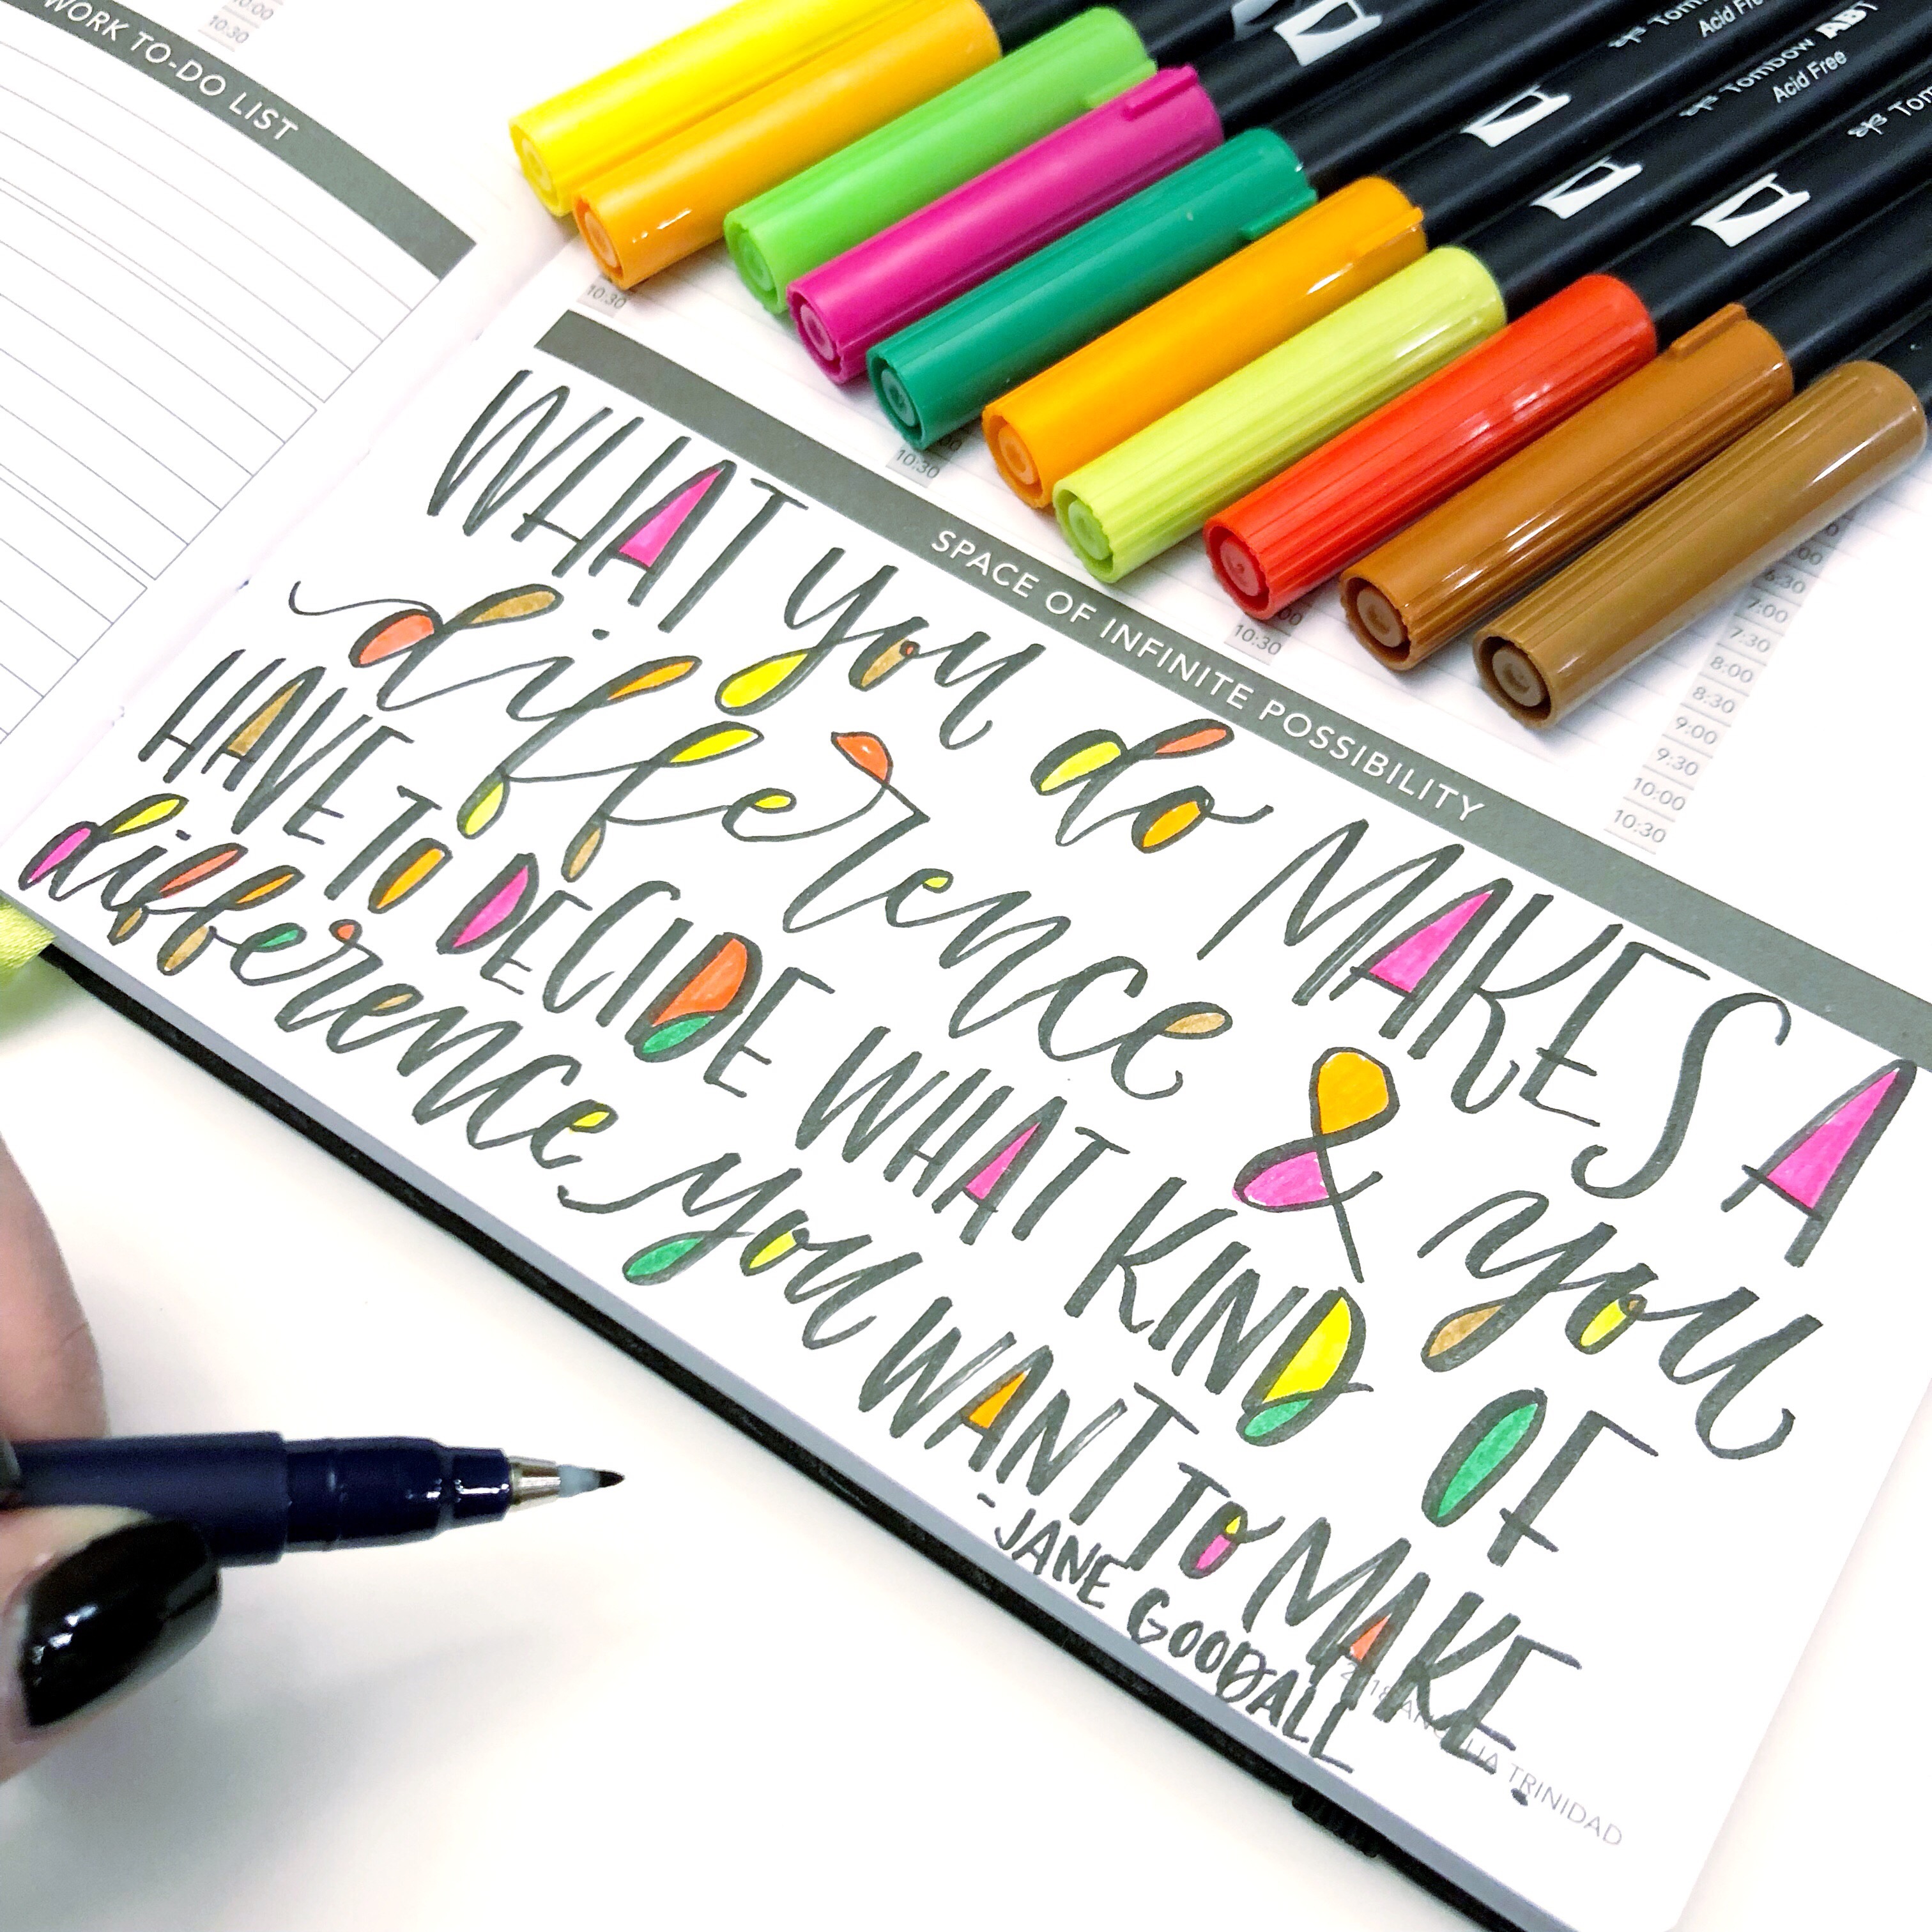 WORK TO-DO LIST
10:00
10:30
Tombow
Acid Free
Tombow ABT
Acid Free
10:30
10:30
10:30
6:30
7:00
7:30
8:00
8:30
9:00
9:30
10:00
10:30
SPACE OF INFINITE POSSIBILITY
WHAT you do MAKES A
difference & you
HAVE TO DECIDE WHAT KIND OF
difference you WANT TO MAKE.
-JANE GOODALL
TRINIDAD